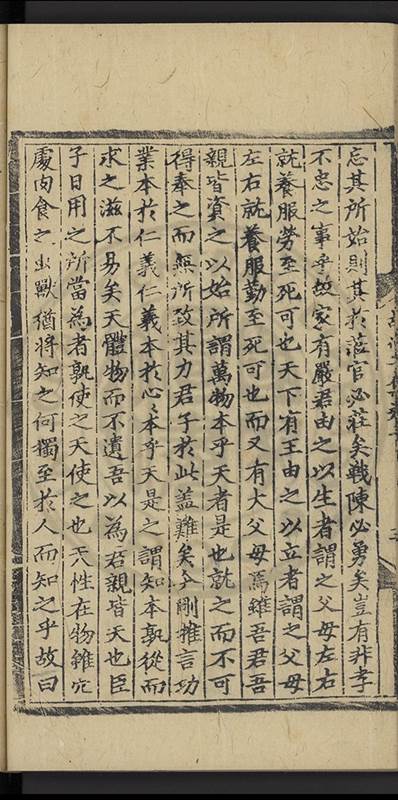 忘其所始則其於莅官必莊矣戰陳必勇矣豈有非孝
不忠之事乎故家有嚴君由之以生者謂之父母左右
就養服勞至死可也天下有王由之以立者謂之父母
左右就養服勤至死可也而又有大父母焉雖吾君吾
親皆資之以始所謂萬物本乎天者是也就之而不可
得奉之而無所致其力君子於此盖難矣今剛雜言功
業本於仁義仁義本於心心本乎天是之謂知本孰從而
求之滋不易矣天體物而不遺吾以為君親皆天也臣
子日用之所當為者孰使之天使之也天性在物雖穴
處肉食之虫獸猶將知之何獨至於人而知之乎故曰